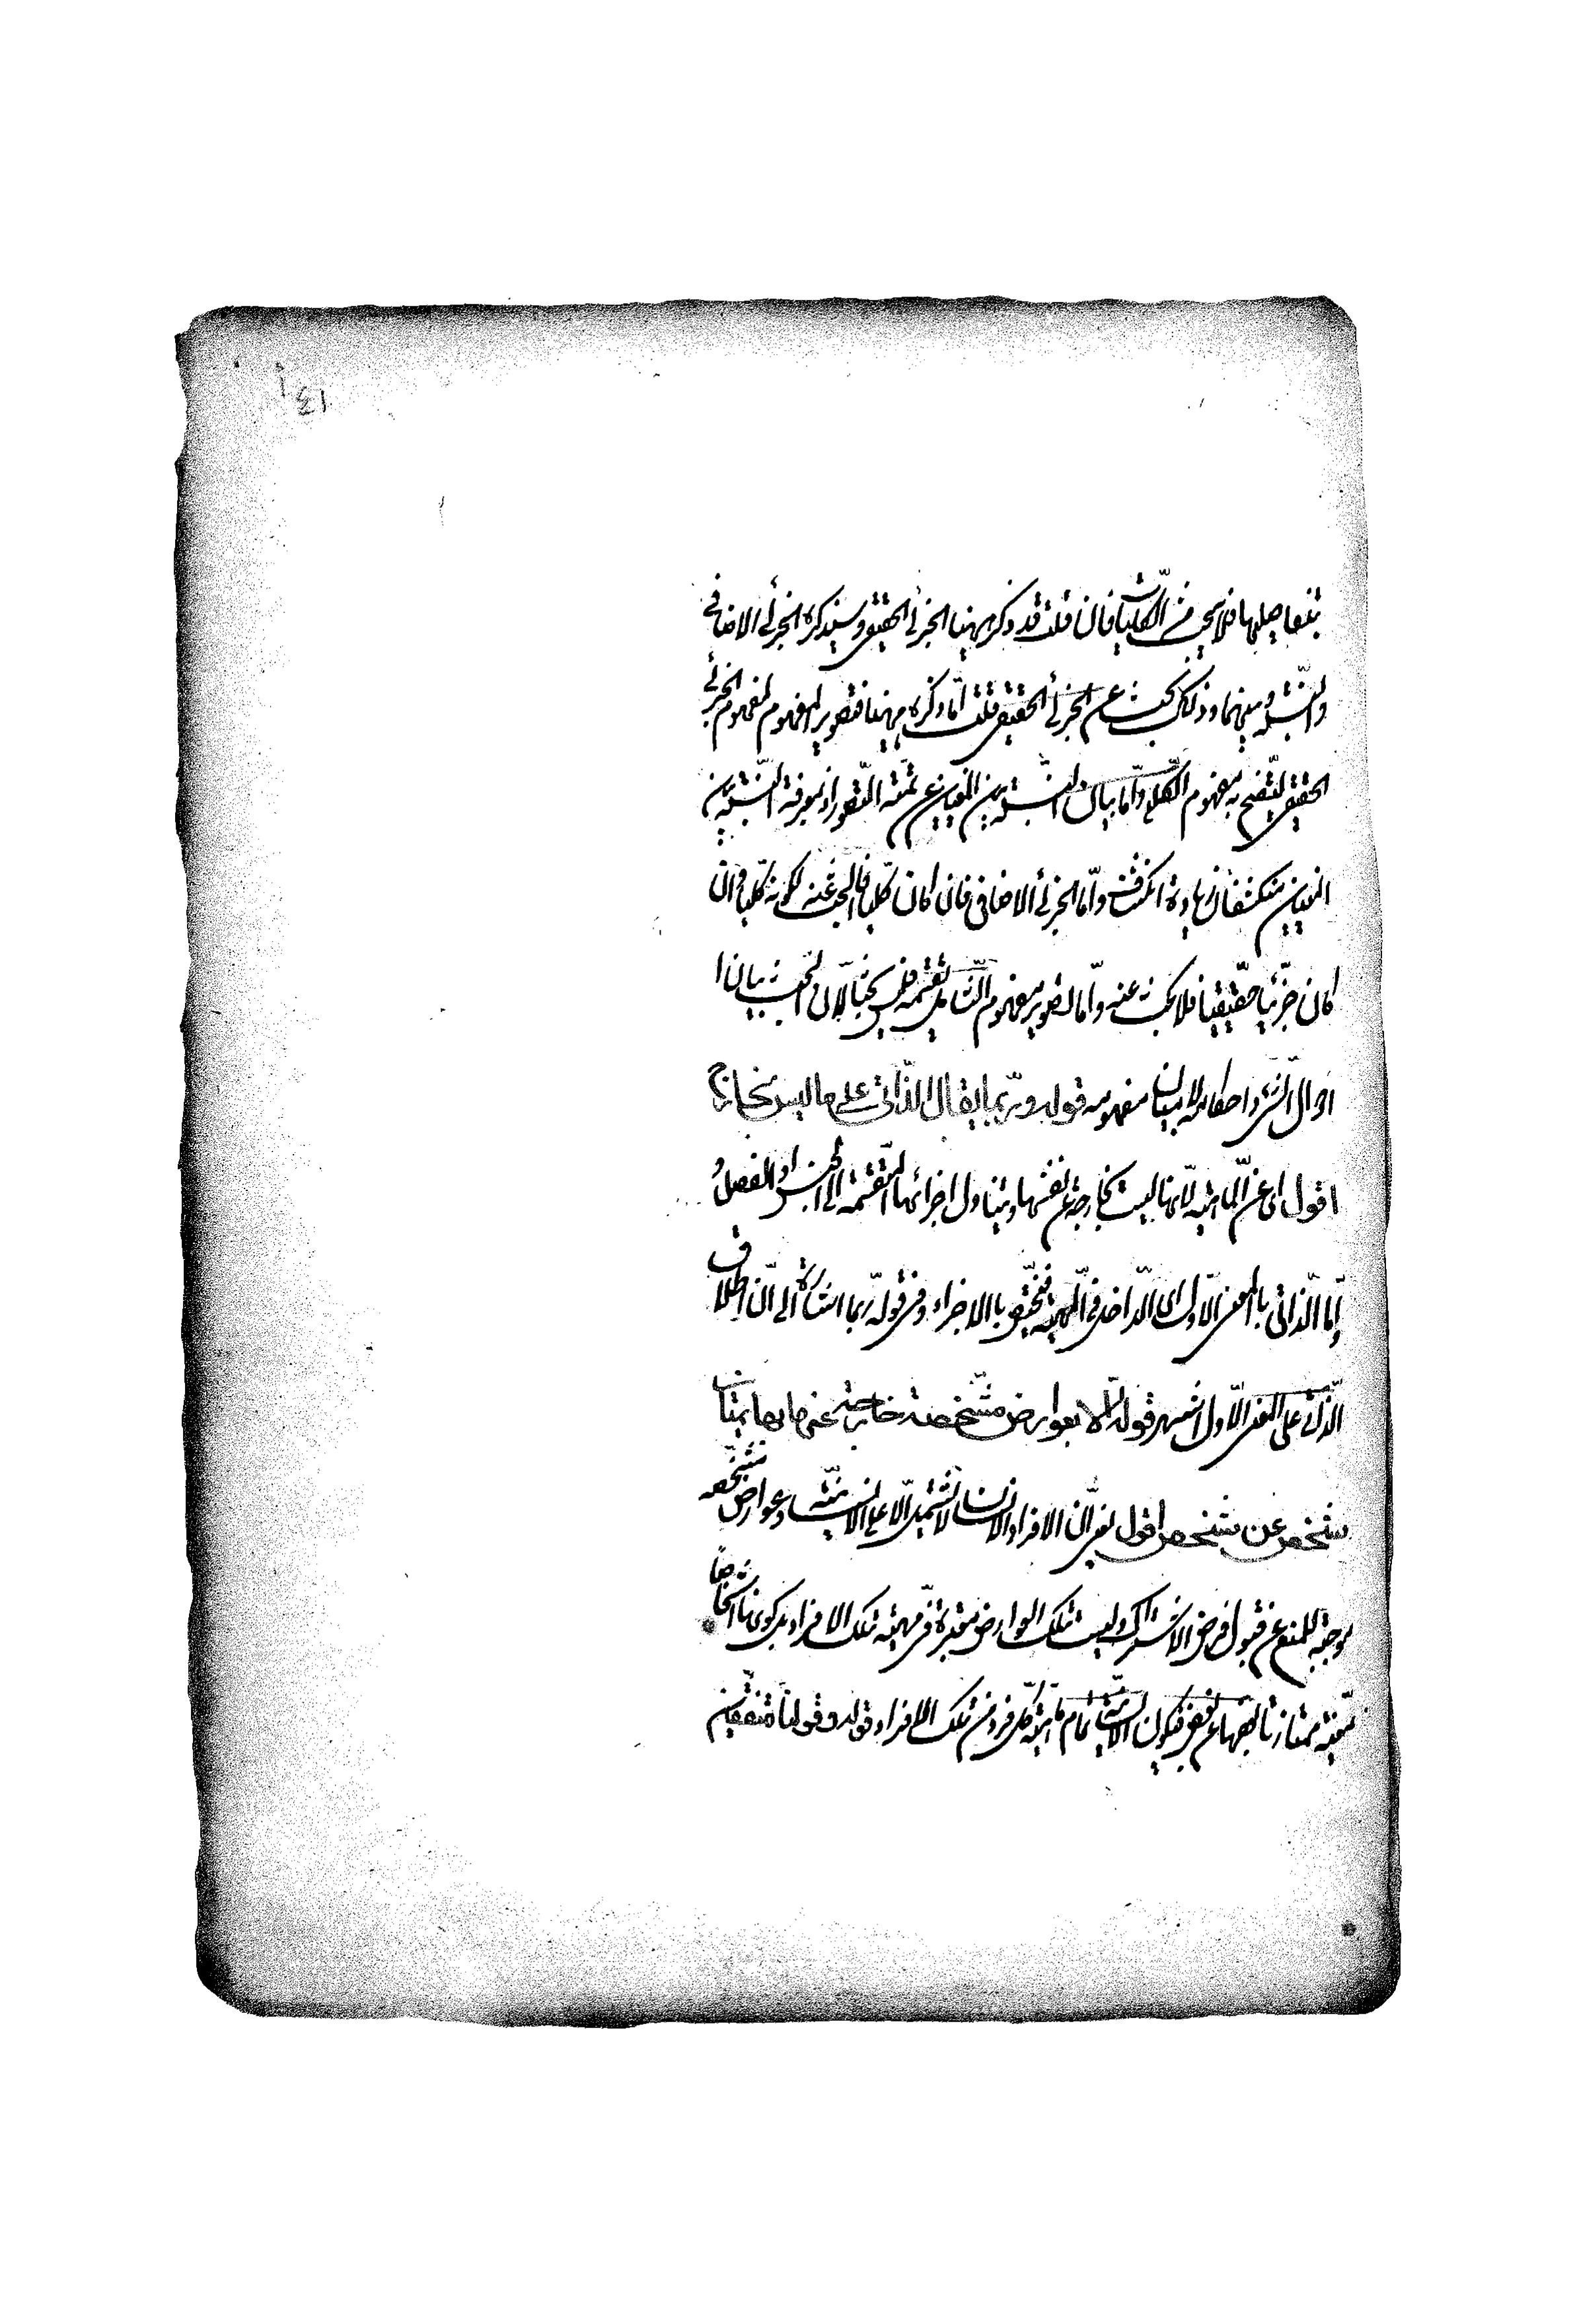 بتفاصيلها فلا يبحث الا عن الكليات فان قلت قد ذكر ههنا الجزئي الحقيقي وسيذكر الجزئي الاضافي
والنسبة بينهما وذلك بحث عن الجزئي الحقيقي قلت اما ذكره ههنا فتصوير لمفهوم الجزئي
الحقيقي ليتضح به مفهوم الكلي واما بيان النسبة بين المعنيين فمن تتمة التصوير اذ بمعرفة النسبة بين
المعنيين ينكشفان زيادة انكشاف واما الجزئي الاضافي فان كان كليا فالبحث عنه لكونه كليا وان
كان جزئيا حقيقيا فلا يبحث عنه واما تصوير مفهوم الشامل لقسميه فليس بحثا لان البحث بيان
احوال الشئ واحكامه لا بيان مفهومه قوله وربما يقال الذاتي على ما ليس بخارج
اقول اي عن الماهية لانها ليست بخارجة عن نفسها ويتناول اجزائها المنقسمة الى الجنس والفصل و
اما الذاتي بالمعنى الاول اي الداخل في المهية فيختص بالاجزاء وفي قوله ربما اشارة الى ان اطلاق
الذاتي على المعنى الاول اشهر قوله الا بعوارض مشخصة خارجة عنها بها يمتاز
شخص عن شخص اقول يعني ان الافراد الانسان لا تشتمل الا على الانسانية وعوارض مشخصة
موجبة للمنع عن قبول فرض الاشتراك وليست تلك العوارض معتبرة في مهية تلك الافراد بل كونها اشخاصا
معينة ممتازا بعضها عن بعض فيكون الانسانية تمام ماهية كل فرد من تلك الافراد قوله وقولنا متفقين